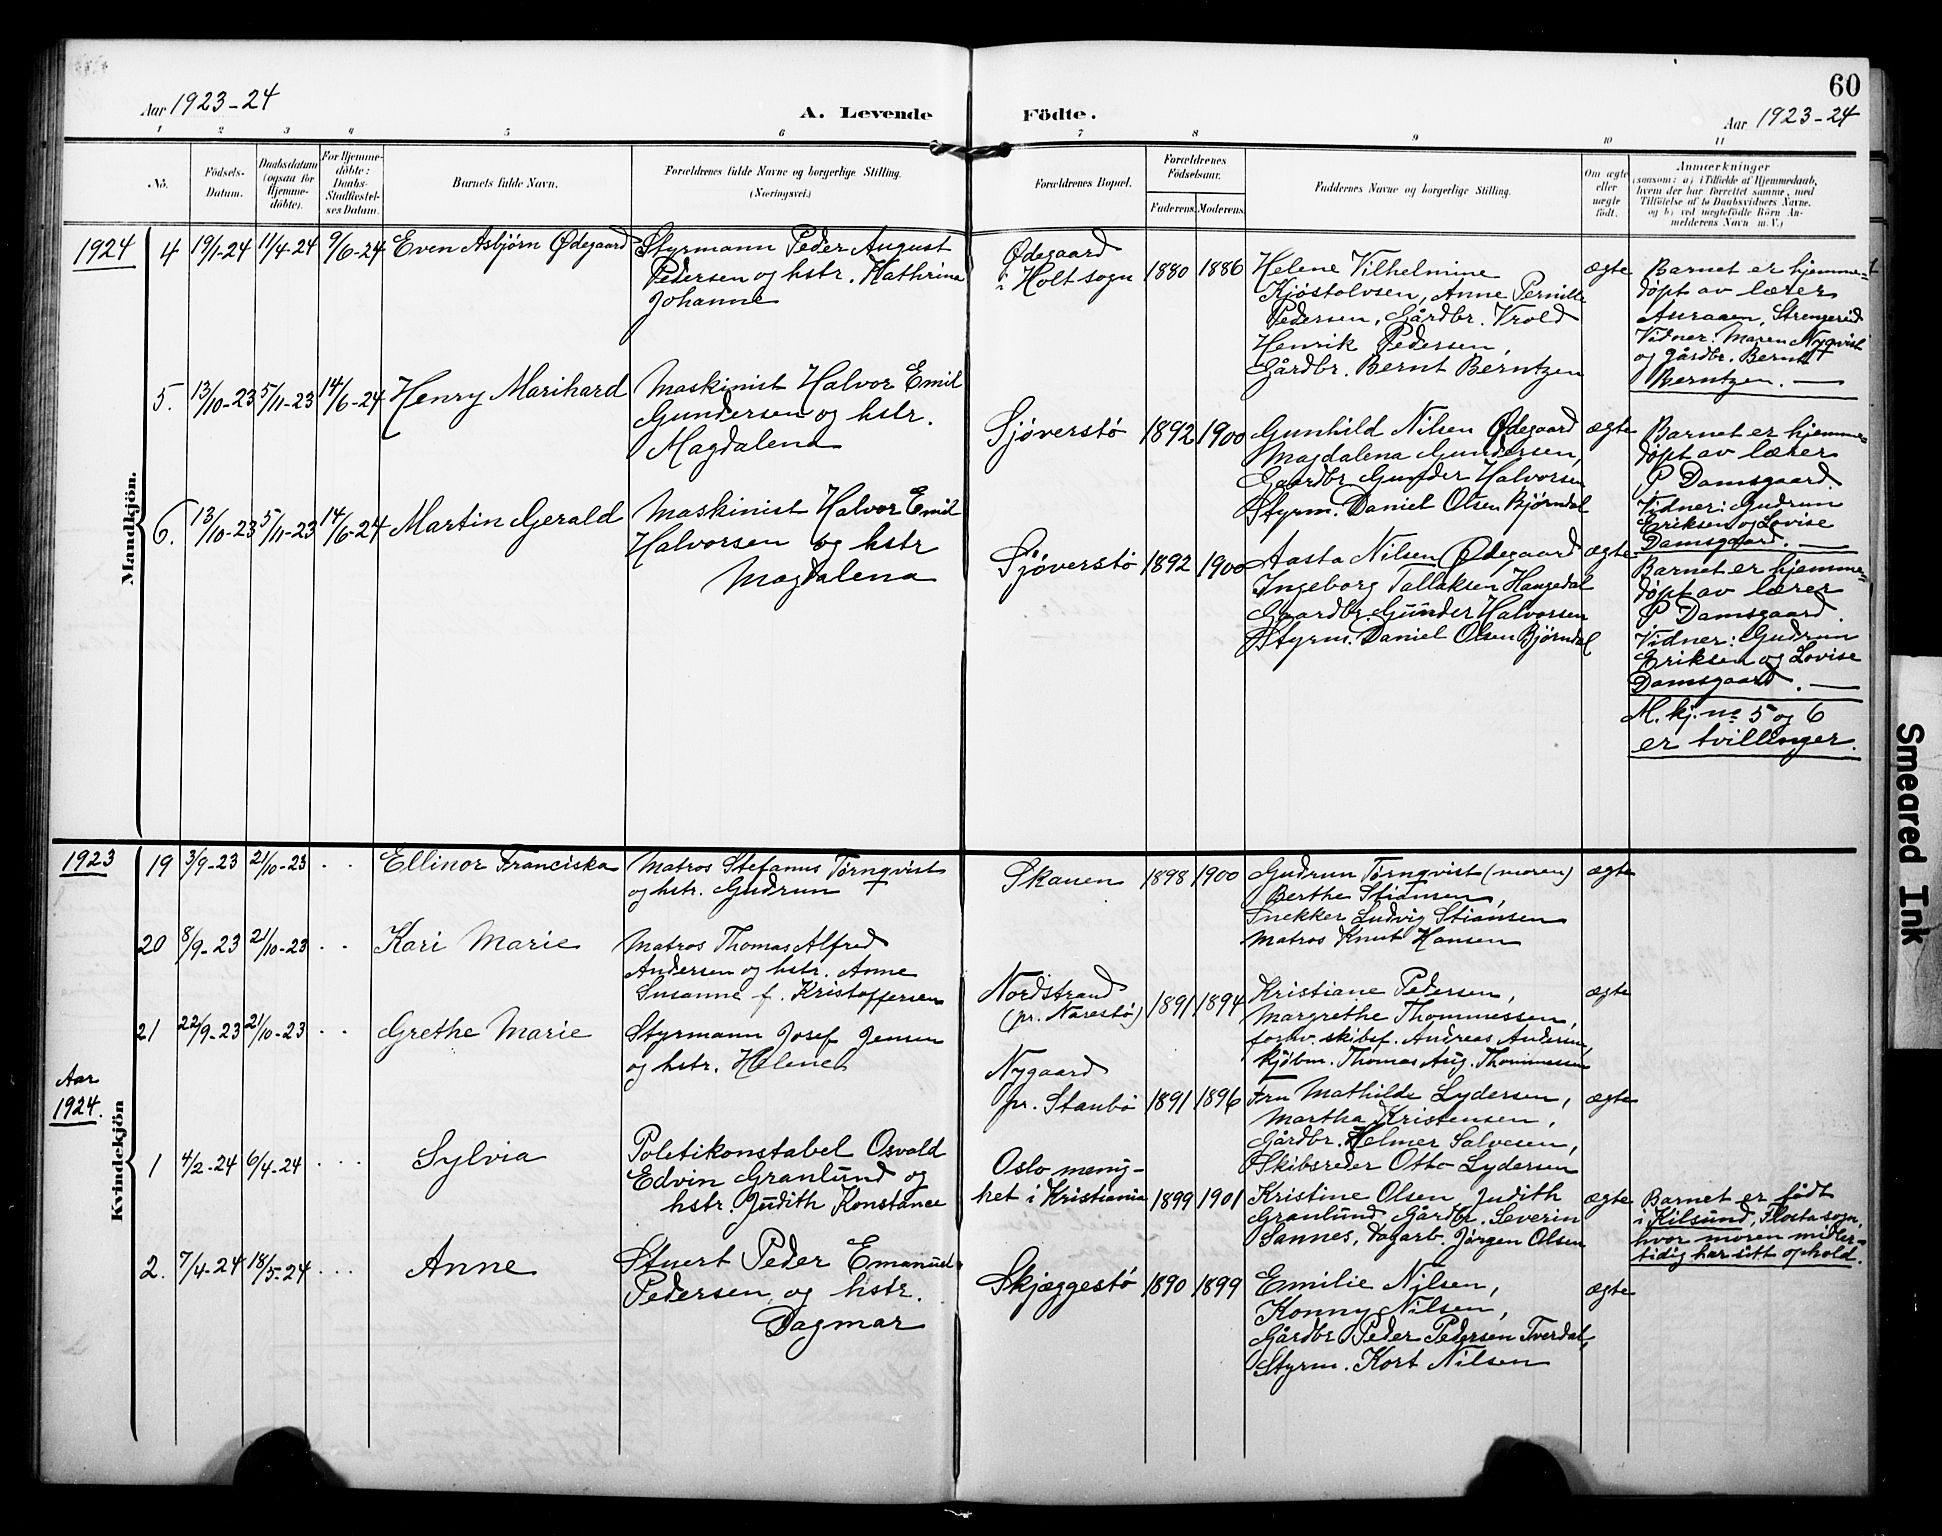 60
Aar 1923-24
A. Levende
Födte.
Aar 1923-24
1 2 3 4 5 6 7 8 9 10 11
No.
Födsels-
Datum.
Daabsdatum
(ogsaa for
Hjemme-
döbte).
For Hjemme-
döbte:
Daabs-
Stadfæstel-
ses Datum.
Barnets fulde Navn.
Forældrenes fulde Navne og borgerlige Stilling.
(Næringsvei.)
Forældrenes Bopæl.
Forældrenes
Födselsaar.
Faderens. Moderens.
Faddernes Navne og borgerlige Stilling.
Om ægte
eller
uægte
födt.
Anmærkninger
(saasom: a) i Tilfælde af Hjemmedaab,
hvem der har forrettet samme, med
Tilföielse af to Daabsvidners Navne.
og b) ved uægtefödte Börn An-
melderens Navn m. V.)
Mandkjön.
1924
4 19/1-24 11/4-24 9/6-24 Even Asbjørn Ødegaard
Styrmann Peder August
Pedersen og hstr. Kathrina
Johanne
Ødegaard
i Holt sogn
1880 1886
Helene Vilhelmine
Kjøstolvsen, Anne Pernille
Pedersen, Gårdbr. Vrold
Henrik Pedersen,
Gårdbr. Bernt Berntzen
ægte
Barnet er hjemme-
døpt av lærer
Auraaen, Strengereid
Vidner: Maren Nyqvist
og gårdbr. Bernt
Berntzen.
5. 13/10-23 5/11-23 14/6-24 Henry Marihard
Maskinist Halvor Emil
Gundersen og hstr.
Magdalena
Sjøverstø
1892 1900
Gunhild Nilsen Ødegaard
Magdalena Gundersen,
Gaardbr Gunder Halvorsen
Styrm. Daniel Olsen Bjørndal
ægte
Barnet er hjemme-
døpt av lærer
P Damsgaard.
Vidner: Gudrun
Eriksen og Lovise
Damsgaard.
6. 13/10-23 5/11-23 14/6-24 Martin Gerald
Maskinist Halvor Emil
Halvorsen og hstr
Magdalena
Sjøverstø
1892 1900
Aasta Nilsen Ødegaard
Ingeborg Tallaksen Haugedal
Gaardbr. Gunder Halvorsen
Styrm. Daniel Olsen Bjørndal
ægte
Barnet er hjemme-
døpt av lærer
P Damsgaard.
Vidner: Gudrun
Eriksen og Lovise
Damsgaard.
M. kj. no 5 og 6
er tvillinger.
Kvindekjön
1923
19 3/9-23 21/10-23 . . Ellinor Franciska
Matros Stefanus Tørnqvist
og hstr. Gudrun
Skauen
1898 1900
Gudrun Tørnqvist (moren)
Berthe Stiansen,
Snekker Ludvig Stiansen
Matros Knut Hansen
ægte
20 8/9-23 21/10-23 . . Kari Marie
Matros Thomas Alfred
Andersen og hstr. Anne
Susanne f. Kristoffersen
Nordstrand
(pr. Narestø)
1891 1894
Kristiane Pedersen,
Margrethe Thommessen,
forhv. skibsf. Andreas Andersen,
kjøbm. Thomas Aug. Thommessen
ægte
21 22/9-23 21/10-23 . . Grethe Marie
Styrmann Josef Jensen
og hstr. Helene
Nygaard
pr. Staubø
1891 1896
Fru Mathilde Lydersen,
Martha Kristensen,
Gårdbr. Helmer Salvesen,
Skibsreder Otto Lydersen
ægte
Aar
1924.
1 4/2-24 6/4-24 . . . Sylvia
Politikonstabel Osvald
Edvin Granlund og
hstr. Judith Konstance
Oslo menig-
het i Kristiania
1899 1901
Kristine Olsen, Judith
Granlund, Gårdbr. Severin
Sannes, Dagarb. Jørgen Olsen
ægte
Barnet er født
i Kilsund, Flosta sogn,
hvor moren midler-
tidig har sitt ophold.
2. 7/4-24 18/5-24 . . . Anne
Stuert Peder Emanuel
Pedersen og hstr.
Dagmar
Skjæggestø
1890 1899
Emilie Nilsen,
Konny Nilsen,
Gårdbr Peder Pedersen Tverdal,
Styrm. Kort Nilsen
ægte
Smeared Ink